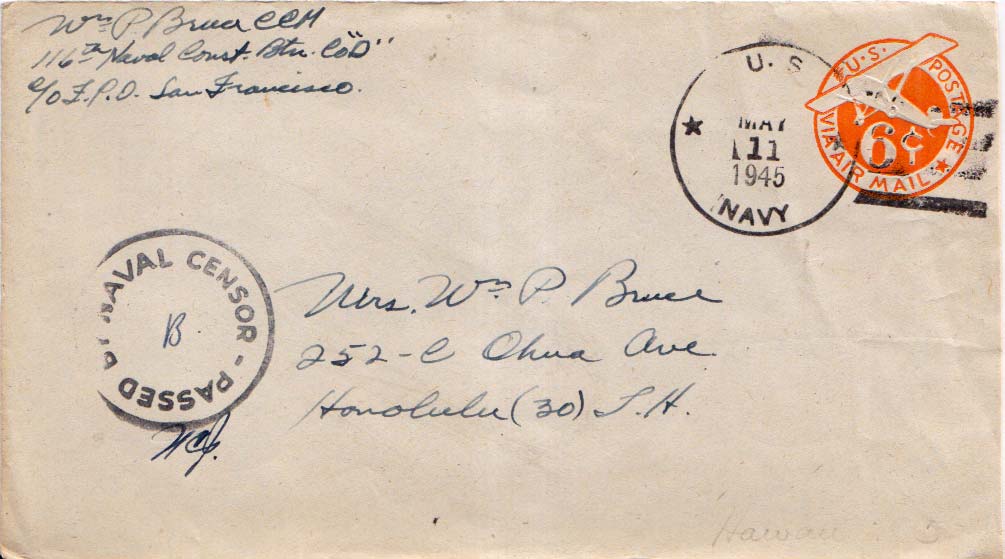 Wm P. Bruce CCM
116th Naval Const. Btn. Co "D"
c/o F.P.O. San Francisco.
U.S. POSTAGE
VIA AIR MAIL
6¢
U.S.
MAY
11
1945
NAVY
PASSED BY NAVAL CENSOR -
B
Mrs. Wm P. Bruce
252-C Ohua Ave.
Honolulu (30) T.H.
Hawaii